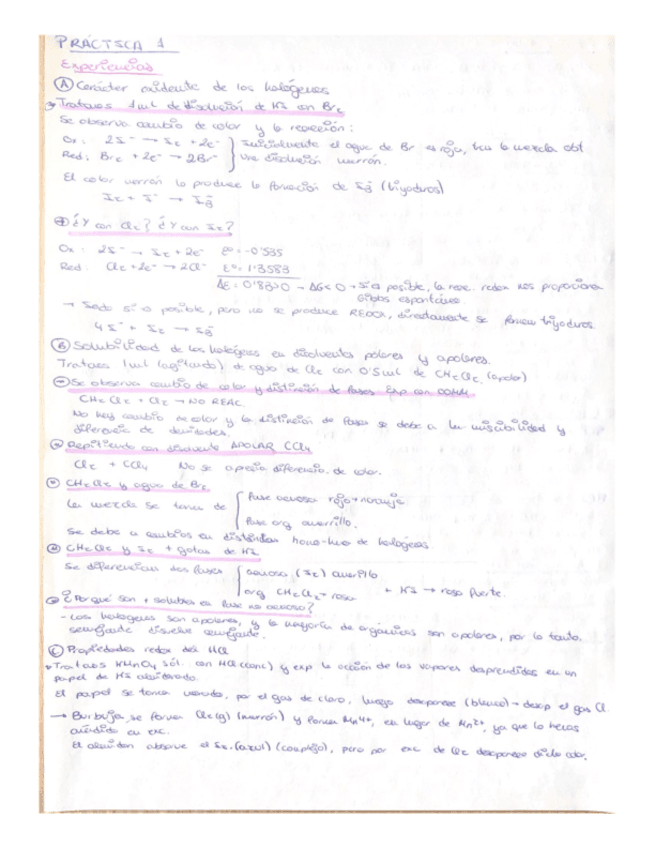 PRÁCTICA 1
Experiencias
Ⓐ Carácter oxidante de los halógenos
Tratamos 1ml de disolución de KI con Br₂
Se observa cambio de color y la reacción:
Ox: 2I⁻ → I₂ + 2e⁻ } Inicialmente el agua de Br es roja, tras la mezcla obt
Red: Br₂ + 2e⁻ → 2Br⁻ una disolución marrón.
El color marrón lo produce la formación de I₃⁻ (triyoduros)
I₂ + I⁻ → I₃⁻
¿Y con Cl₂? ¿Y con I₂?
Ox: 2I⁻ → I₂ + 2e⁻ Eº = -0'535
Red: Cl₂ + 2e⁻ → 2Cl⁻ Eº = 1'3583
ΔE = 0'8230 → ΔG < 0 → Sí es posible, la reac. redox nos proporciona
Gibbs espontánea.
→ Iodo sí es posible, pero no se produce REDOX, directamente se forman triyoduros.
4I⁻ + I₂ → I₃⁻
Ⓑ Solubilidad de los halógenos en disolventes polares y apolares.
Tratamos 1ml (agitando) de agua de Cl₂ con 0'5 ml de CH₂Cl₂ (apolar)
Se observa cambio de color y distinción de fases
CH₂Cl₂ + Cl₂ → NO REAC.
No hay cambio de color y la distinción de fases se debe a la miscibilidad y
diferencia de densidades.
Repitiendo con disolvente APOLAR CCl₄
Cl₂ + CCl₄ No se aprecia diferencia de color.
CH₂Cl₂ y agua de Br₂
La mezcla se torna de { Fase acuosa rojo+naranja
Fase org amarillo.
Se debe a cambios en distintos homo-lumo de halógenos.
CH₂Cl₂ y I₂ + gotas de KI
Se diferencian dos fases { acuosa (I₂) amarillo
org CH₂Cl₂ → rosa + KI → rosa fuerte.
¿Por qué son + solubles en fase no acuosa?
- Los halógenos son apolares, y la mayoría de orgánicos son apolares, por lo tanto,
semejante disuelve semejante.
Ⓒ Propiedades redox del HCl
Tratamos KMnO₄ sól. con HCl (conc) y exp la acción de los vapores desprendidos en un
papel de KI almidonado.
El papel se torna morado, por el gas de cloro, luego desaparece (blanco) → desap el gas Cl.
→ Burbujea, se forma Cl₂(g) (marrón) y forma Mn⁴⁺, en lugar de Mn²⁺, ya que lo hemos
añadido en exc.
El almidón absorve el I₂ (azul) (complejo), pero por exc de Cl₂ desaparece dicho color.